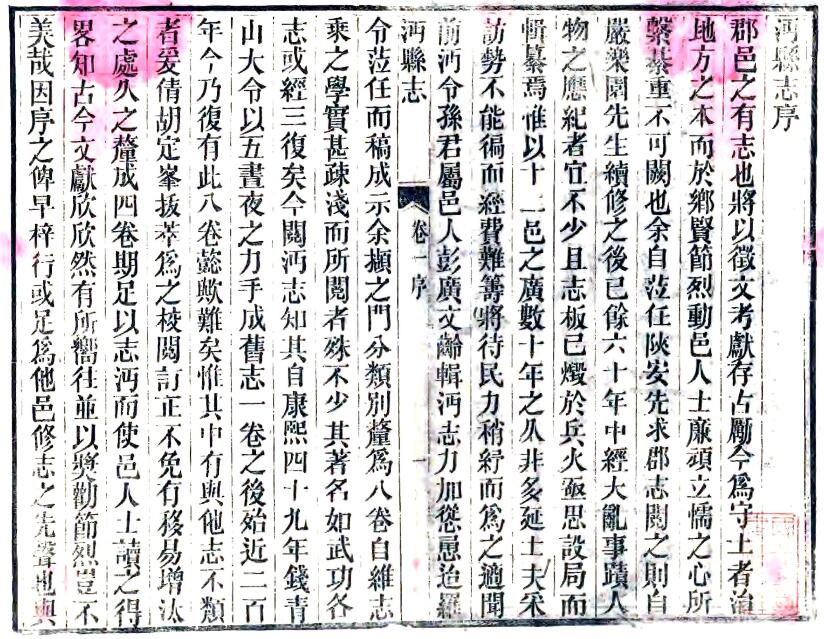 沔縣志序
郡邑之有志也將以徵文考獻存古勵今為守土者治
地方之本而於鄉賢節烈動邑人士廉頑立懦之心所
繫綦重不可闕也余自蒞任陝安先求郡志閱之則自
嚴樂園先生續修之後已餘六十年中經大亂事蹟人
物之應紀者宜不少且志板已燬於兵火亟思設局而
輯纂焉惟以十二邑之廣數十年之久非多延士夫采
訪勢不能徧而經費難籌將待民力稍紓而為之適聞
前沔令孫君屬邑人彭廣文齡輯沔志力加慫恿迨羅
沔縣志 卷一序 一
令蒞任而稿成示余擷之門分類別釐為八卷自維志
乘之學實甚疎淺而所閱者殊不少其著名如武功各
志或經三復矣今閱沔志知其自康熙四十九年錢青
山大令以五晝夜之力手成舊志一卷之後始近二百
年今乃復有此八卷懿歟難矣惟其中有與他志不類
者爰倩胡定峯拔萃為之校閱訂正不免有移易增汰
之處久之釐成四卷期足以志沔而使邑人士讀之得
畧知古今文獻欣欣然有所嚮往並以獎勸節烈豈不
美哉因序之俾早梓行或足為他邑修志之先聲也與